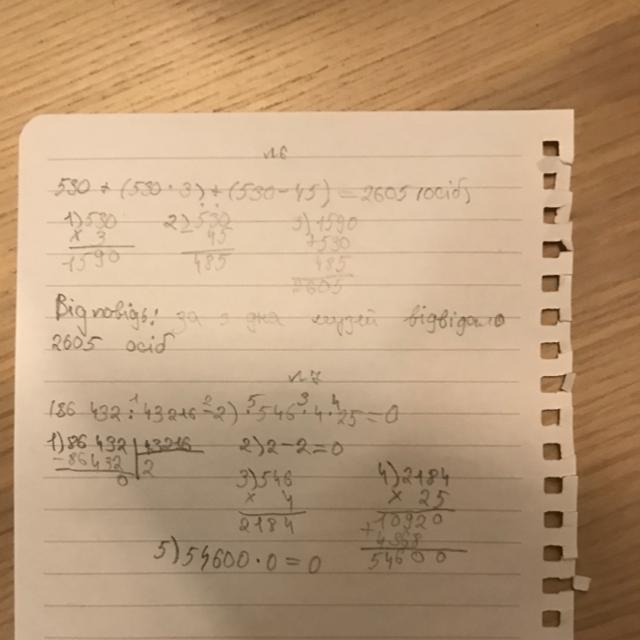 №6
530 + (530 · 3) + (530 - 45) = 2605 (осіб)
1) 530 2) 530 3) 1590
× 3 - 45 + 530
1590 485 485
2605
Відповідь: за 3 дна музей відвідало
2605 осіб
№7
(86 432 : 43216 - 2) · 546 · 4 · 25 = 0
1 2 5 3 4
1) 86 432 | 43216 2) 2 - 2 = 0
- 86432 2
0 3) 546 4) 2184
× 4 × 25
2184 10920
+ 4368
5) 54600 · 0 = 0 54600